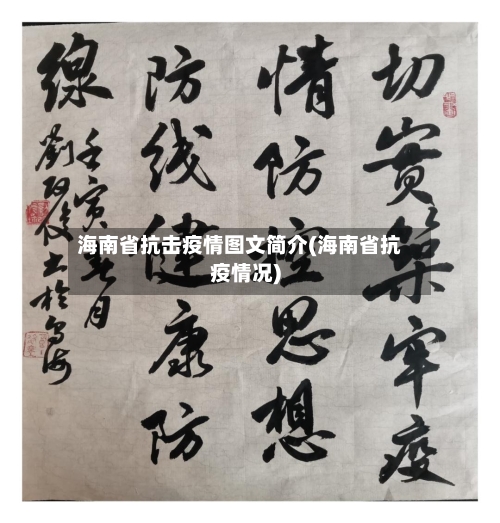 切實築牢疫
情防控思想
防线健康防
線
壬寅春月
劉俊书於乌海
海南省抗击疫情图文简介(海南省抗
疫情况)